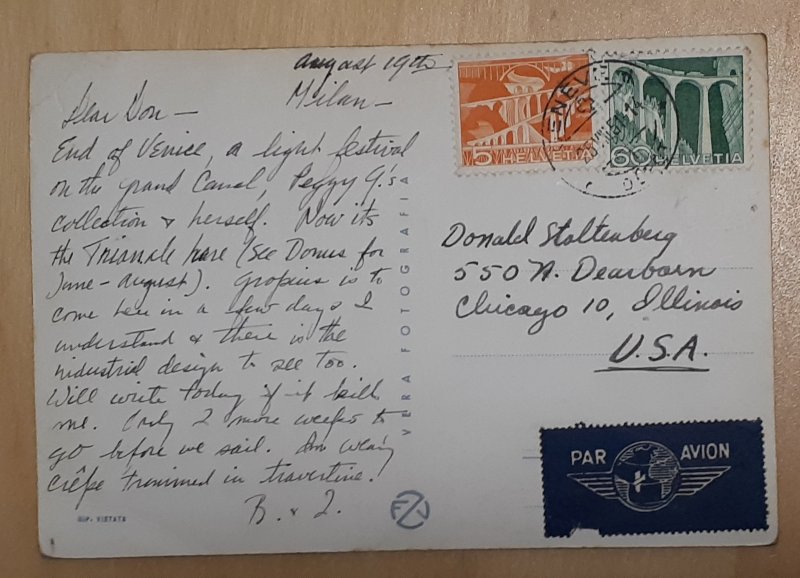 August 19th
Milan –
Dear Don –
End of Venice, a light festival
on the grand Canal, Peggy G.'s
collection & herself. Now its
the Triannale here (see Domus for
June - August). Gropius is to
come here in a few days I
understand & there is the
industrial design to see too.
Will write today if it kills
me. Only 2 more weeks to
go before we sail. Am wearing
crêpe trimmed in travertine!
B. & J.
VERA FOTOGRAFIA
RIP. VIETATA
5 HELVETIA
60 HELVETIA
Donald Stoltenberg
550 N. Dearborn
Chicago 10, Illinois
U.S.A.
PAR AVION